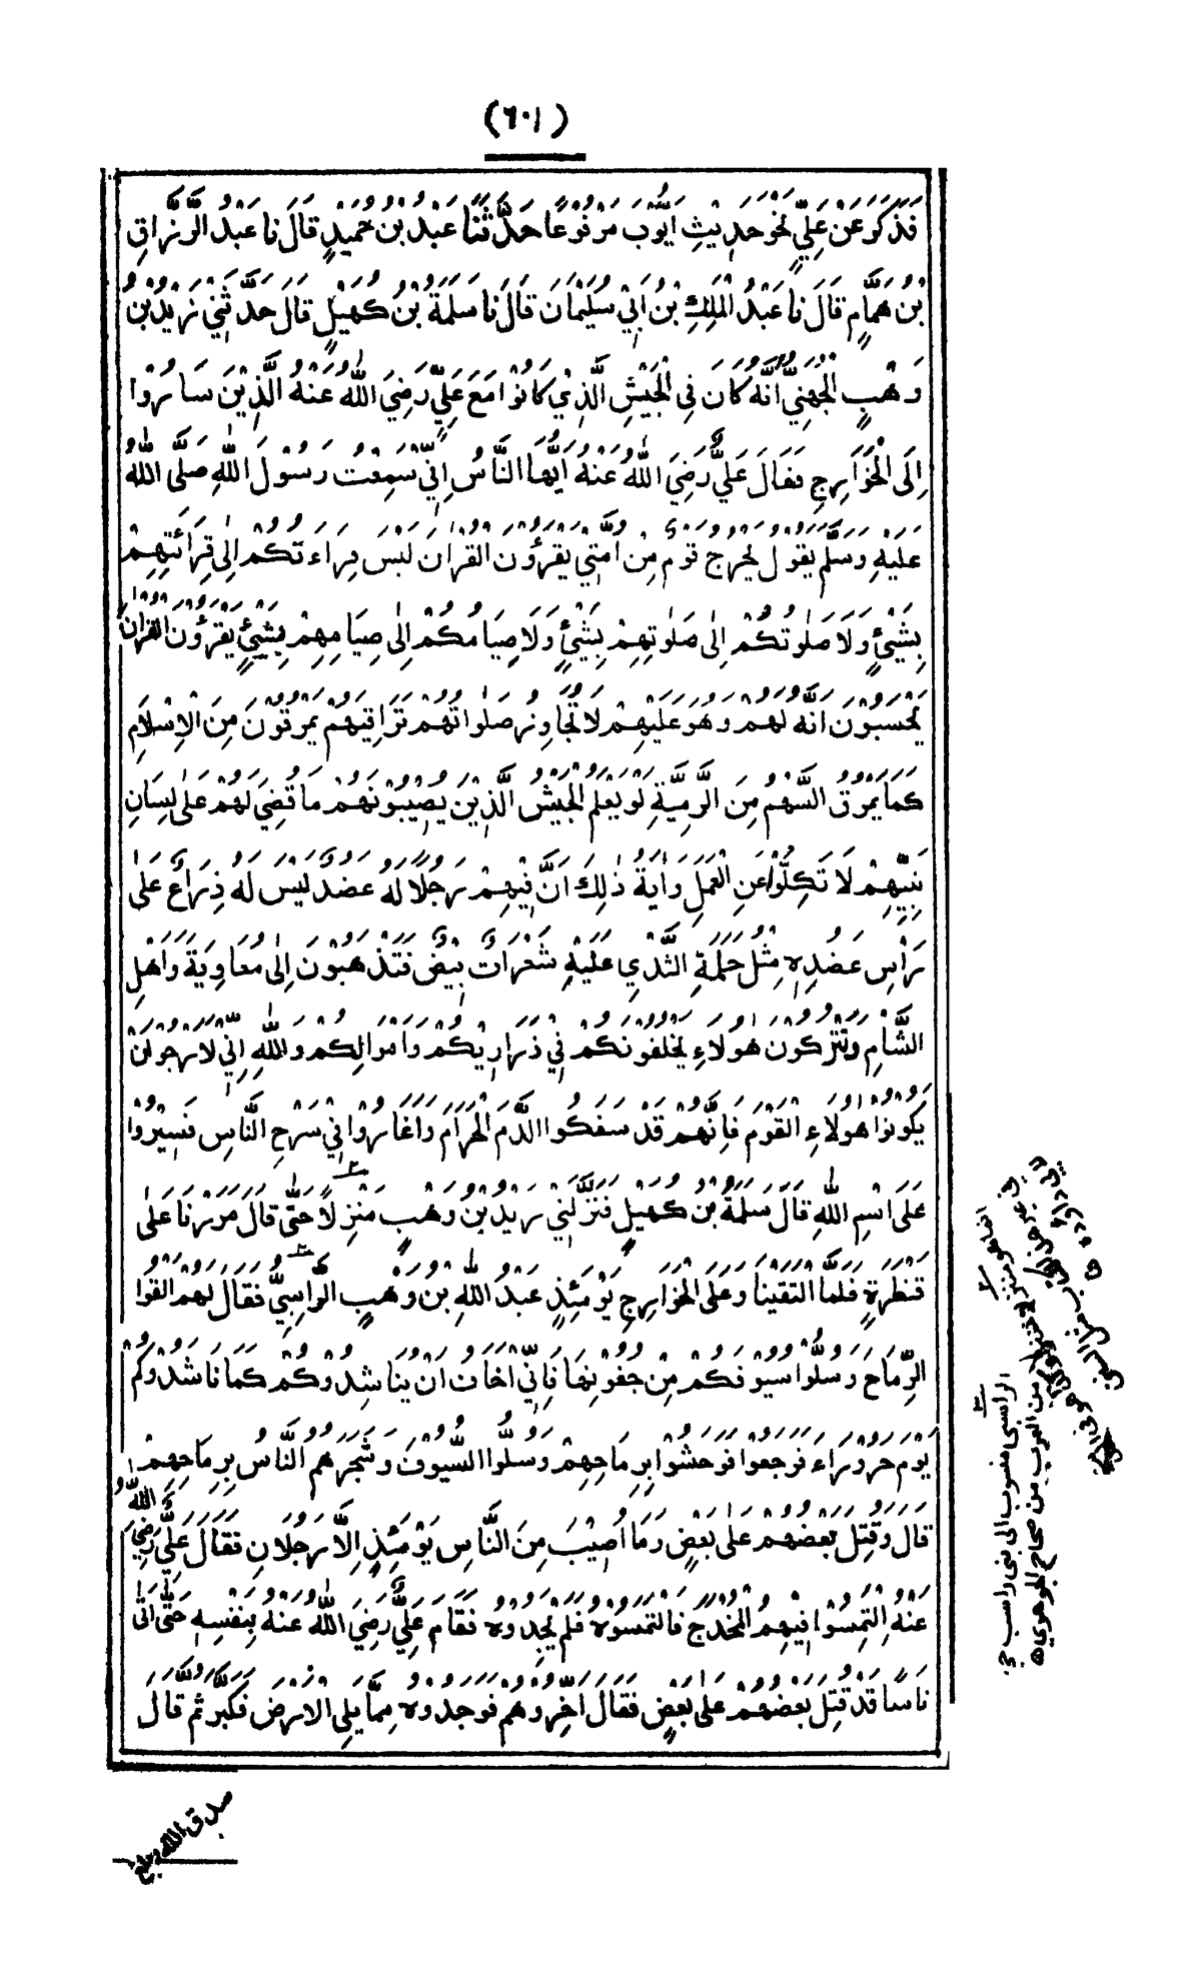 (٦٠١)
فَذَكَرَ عَنْ عَلِيٍّ نَحْوَ حَدِيْثِ اَيُّوْبَ مَرْفُوْعًا حَدَّثَنَا عَبْدُ بْنُ حُمَيْدٍ قَالَ نَا عَبْدُ الرَّزَّاقِ
بْنُ هَمَّامٍ قَالَ نَا عَبْدُ الْمَلِكِ بْنُ اَبِيْ سُلَيْمَانَ قَالَ نَا سَلَمَةُ بْنُ كُهَيْلٍ قَالَ حَدَّثَنِيْ زَيْدُ بْنُ
وَهْبٍ الْجُهَنِيُّ اَنَّهُ كَانَ فِي الْجَيْشِ الَّذِيْ كَانُوْا مَعَ عَلِيٍّ رَضِيَ اللّٰهُ عَنْهُ الَّذِيْنَ سَارُوْا
اِلَى الْخَوَارِجِ فَقَالَ عَلِيٌّ رَضِيَ اللّٰهُ عَنْهُ اَيُّهَا النَّاسُ اِنِّيْ سَمِعْتُ رَسُوْلَ اللّٰهِ صَلَّى اللّٰهُ
عَلَيْهِ وَسَلَّمَ يَقُوْلُ يَخْرُجُ قَوْمٌ مِنْ اُمَّتِيْ يَقْرَؤُنَ الْقُرْاٰنَ لَيْسَ قِرَاءَتُكُمْ اِلٰى قِرَائَتِهِمْ
بِشَيْئٍ وَلَا صَلٰوتُكُمْ اِلٰى صَلٰوتِهِمْ بِشَيْئٍ وَلَا صِيَامُكُمْ اِلٰى صِيَامِهِمْ بِشَيْئٍ يَقْرَؤُنَ الْقُرْاٰنَ
يَحْسَبُوْنَ اَنَّهُ لَهُمْ وَهُوَ عَلَيْهِمْ لَا تُجَاوِزُ صَلٰواتُهُمْ تَرَاقِيَهُمْ يَمْرُقُوْنَ مِنَ الْاِسْلَامِ
كَمَا يَمْرُقُ السَّهْمُ مِنَ الرَّمِيَّةِ لَوْ يَعْلَمُ الْجَيْشُ الَّذِيْنَ يُصِيْبُوْنَهُمْ مَا قُضِيَ لَهُمْ عَلٰى لِسَانِ
نَبِيِّهِمْ لَا تَكِلُوْا عَنِ الْعَمَلِ وَاٰيَةُ ذٰلِكَ اَنَّ فِيْهِمْ رَجُلًا لَهُ عَضُدٌ لَيْسَ لَهُ ذِرَاعٌ عَلٰى
رَأْسِ عَضُدِهٖ مِثْلُ حَلَمَةِ الثَّدْيِ عَلَيْهِ شَعَرَاتٌ بِيْضٌ فَتَذْهَبُوْنَ اِلٰى مُعَاوِيَةَ وَاَهْلِ
الشَّامِ وَتَتْرُكُوْنَ هٰؤُلَاءِ يَخْلُفُوْنَكُمْ فِيْ ذَرَارِيْكُمْ وَاَمْوَالِكُمْ وَاللّٰهِ اِنِّيْ لَاَرْجُوْ اَنْ
يَكُوْنُوْا هٰؤُلَاءِ الْقَوْمَ فَاِنَّهُمْ قَدْ سَفَكُوا الدَّمَ الْحَرَامَ وَاَغَارُوْا فِيْ سَرْحِ النَّاسِ فَسِيْرُوْا
عَلَى اسْمِ اللّٰهِ قَالَ سَلَمَةُ بْنُ كُهَيْلٍ فَنَزَّلَنِيْ زَيْدُ بْنُ وَهْبٍ مَنْزِلًا حَتّٰى قَالَ مَرَرْنَا عَلٰى
قَنْطَرَةٍ فَلَمَّا الْتَقَيْنَا وَعَلَى الْخَوَارِجِ يَوْمَئِذٍ عَبْدُ اللّٰهِ بْنُ وَهْبٍ الرَّاسِبِيُّ فَقَالَ لَهُمْ اَلْقُوا
الرِّمَاحَ وَسُلُّوْا سُيُوْفَكُمْ مِنْ جُفُوْنِهَا فَاِنِّيْ اَخَافُ اَنْ يُنَاشِدُوْكُمْ كَمَا نَاشَدُوْكُمْ
يَوْمَ حَرَوْرَاءَ فَرَجَعُوْا فَوَحَشُوْا بِرِمَاحِهِمْ وَسَلُّوا السُّيُوْفَ وَشَجَرَهُمُ النَّاسُ بِرِمَاحِهِمْ
قَالَ وَقُتِلَ بَعْضُهُمْ عَلٰى بَعْضٍ وَمَا اُصِيْبَ مِنَ النَّاسِ يَوْمَئِذٍ اِلَّا رَجُلَانِ فَقَالَ عَلِيٌّ رَضِيَ اللّٰهُ
عَنْهُ الْتَمِسُوْا فِيْهِمُ الْمُخْدَجَ فَالْتَمَسُوْهُ فَلَمْ يَجِدُوْهُ فَقَامَ عَلِيٌّ رَضِيَ اللّٰهُ عَنْهُ بِنَفْسِهٖ حَتّٰى اَتٰى
نَاسًا قَدْ قُتِلَ بَعْضُهُمْ عَلٰى بَعْضٍ فَقَالَ اَخِّرُوْهُمْ فَوَجَدُوْهُ مِمَّا يَلِي الْاَرْضَ فَكَبَّرَ ثُمَّ قَالَ
الراسبى منسوب الى بنى راسب حي
من العرب من صحاح الجوهري
صدق الله وبلغ